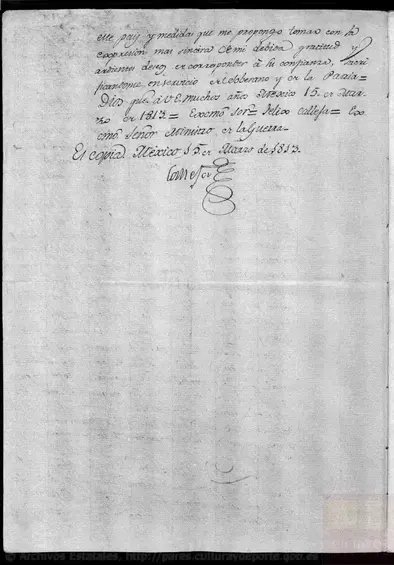 este pais y medidas que me propongo tomar con la
expresion mas sincera de mi debida gratitud y
ardientes deseos de corresponder á su confianza, sacri
ficandome en servicio del Soberano y de la Patria=
Dios gue á V.E. muchos años Mexico 15. de Mar-
zo de 1813.= Excmo Sor= Felix Calleja= Ex-
cmo Señor Ministro de la Guerra
Es copia Mexico 15 de Marzo de 1813.
© Archivos Estatales, http://pares.culturaydeporte.gob.es